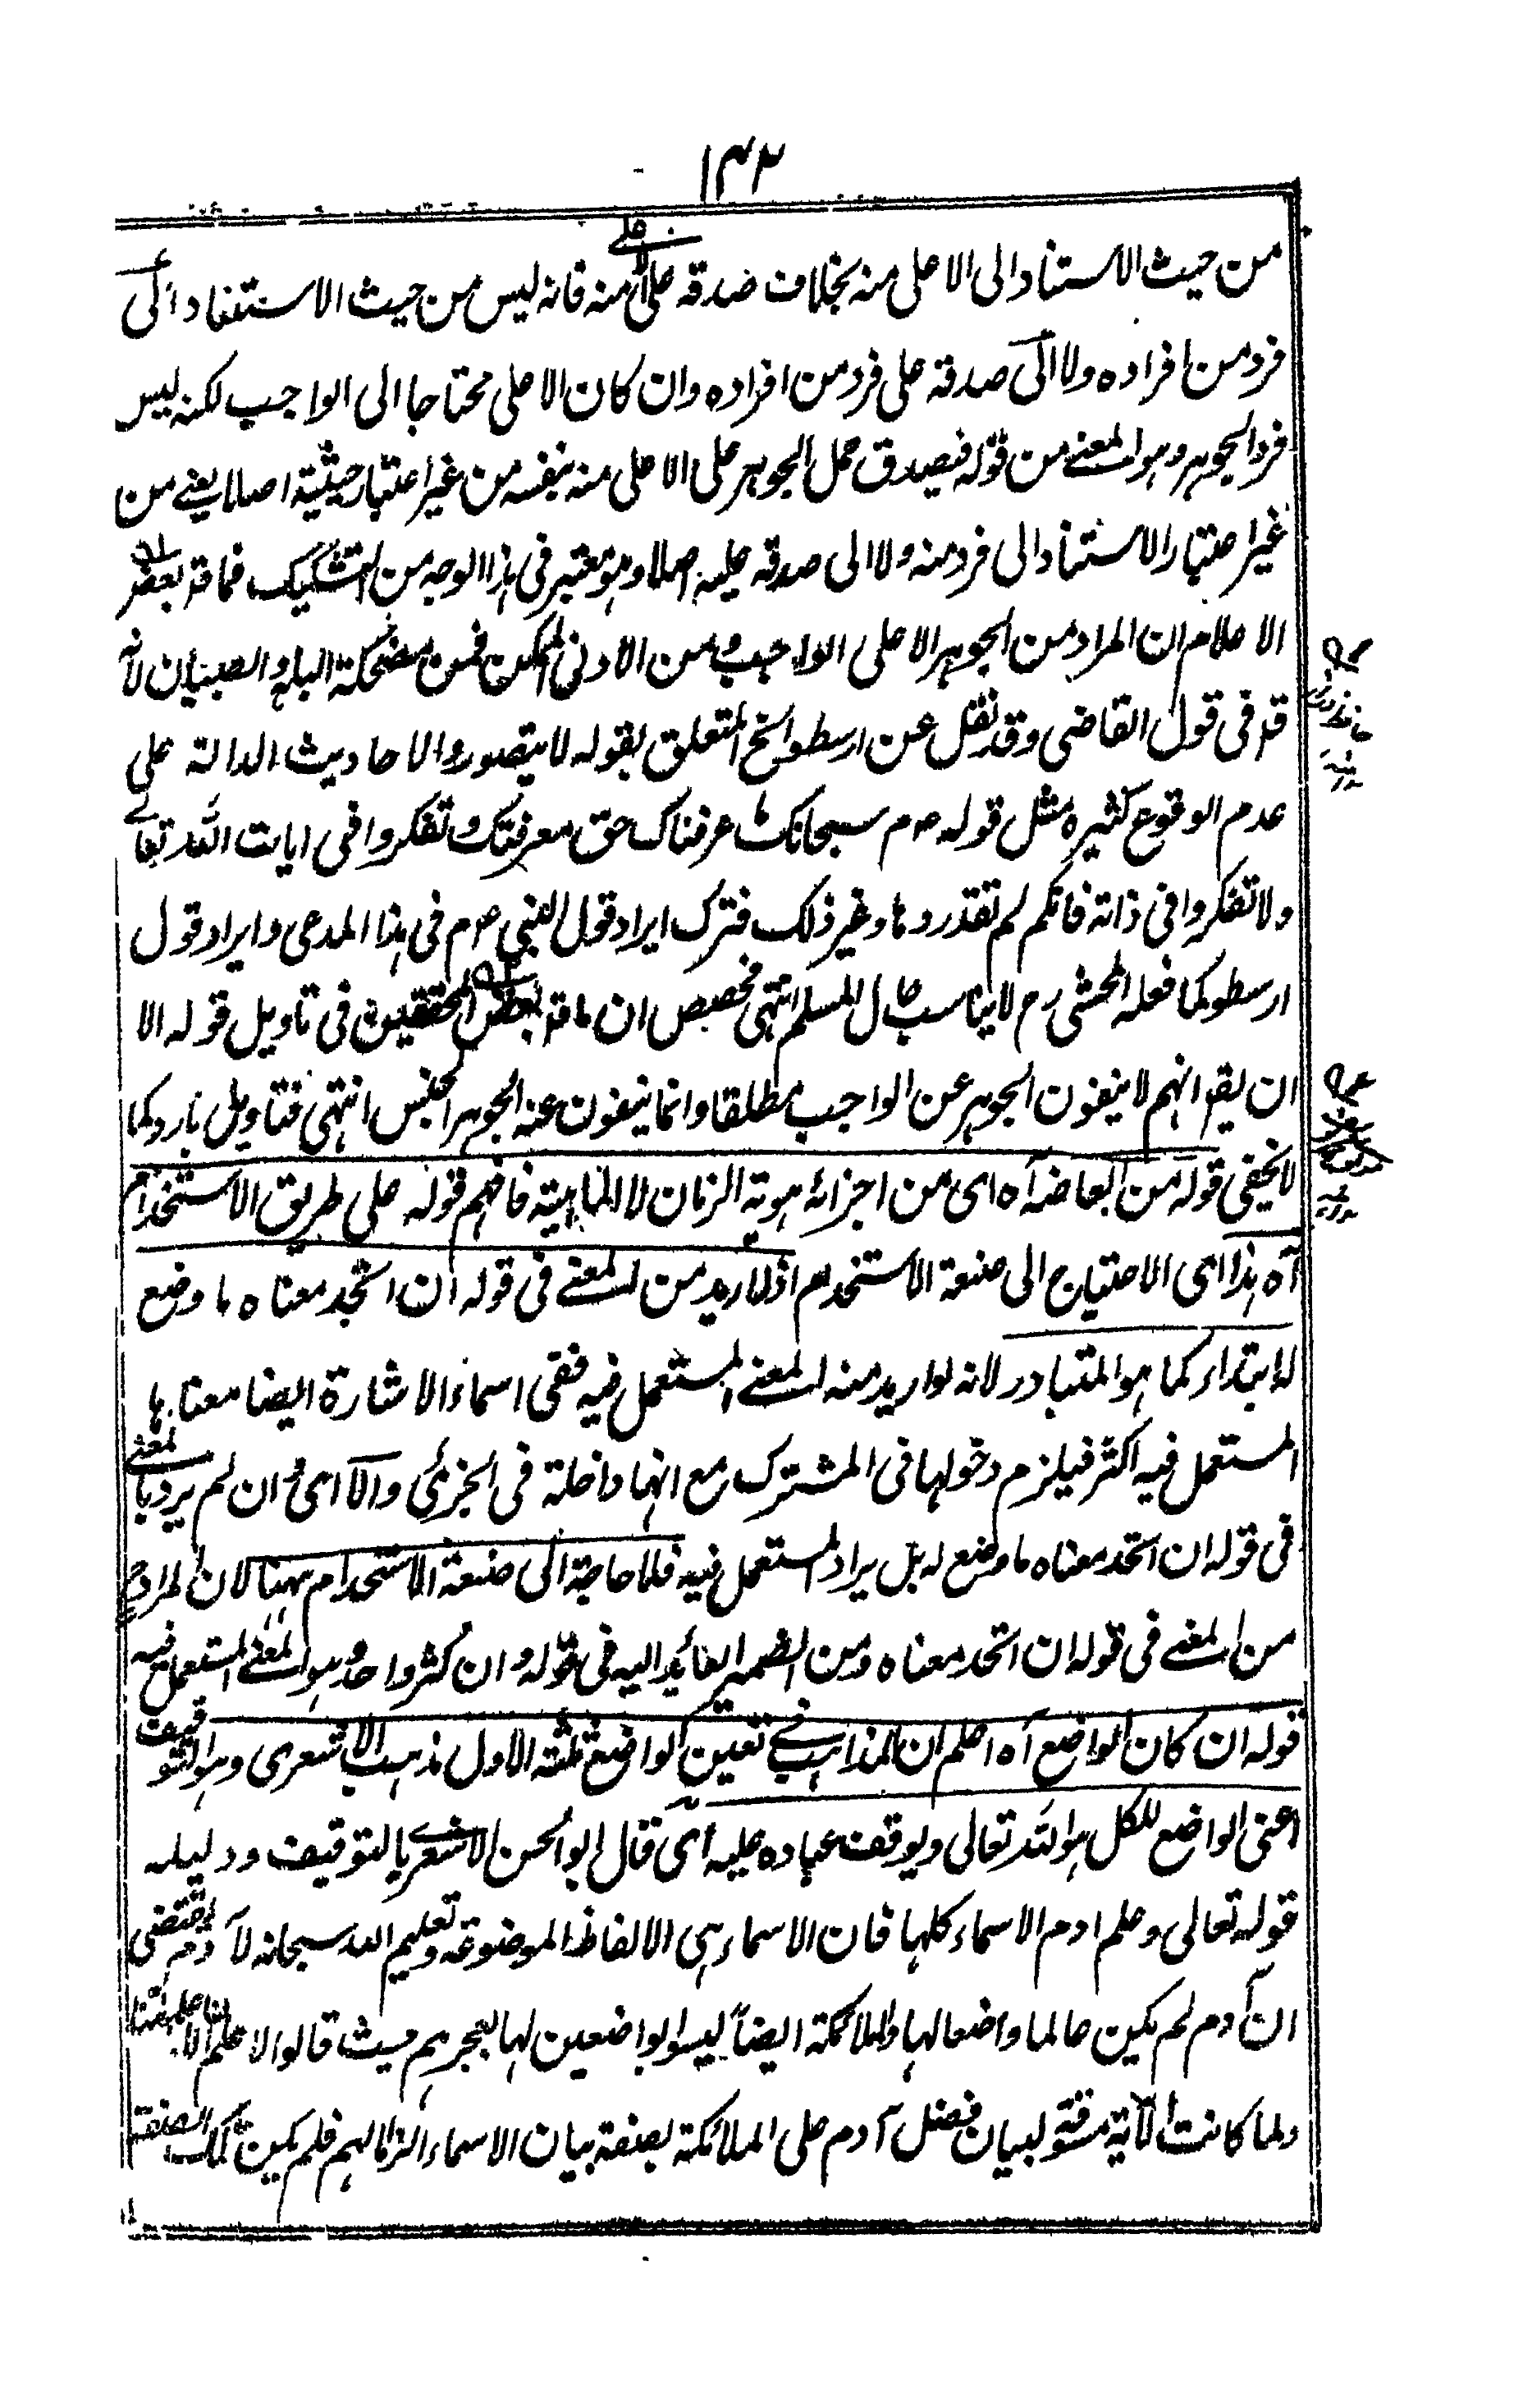 ١٣٢
من حيث الاستناد الى الاعلى منه بخلاف صدقه على الاعلى منه فانه ليس من حيث الاستناد الى
فرد من افراده ولا الى صدقه على فرد من افراده وان كان الاعلى محتاجا الى الواجب لكنه ليس
فرد الجوهر وهو المعنے من قوله فيصدق حمل الجوهر على الاعلى منه بنفسه من غير اعتبار حيثية اصلا يعنے من
غير اعتبار الاستناد الى فرد منه ولا الى صدقه عليه اصلا وهو معتبر فى هذا الوجه من التشكيك فما قد بعض
الاعلام ان المراد من الجوهر الاعلى الواجب ومن الادنى الممكن فمن مضحكة البله والصبيان لانه
قد فى قول القاضى وقد نقل عن ارسطو الخ المتعلق بقوله لا يتصور والاحاديث الدالة على
عدم الوقوع كثيرة مثل قوله صم سبحانك ما عرفناك حق معرفتك وتفكروا فى ايات الله تعالے
ولا تفكروا فى ذاته فانكم لم تقدروها وغير ذلك فترك ايراد قول النبى صم فى هذا المدعى وايراد قول
ارسطو كما فعله المحشى رح لا يناسب حال المسلم انتهى ان ما قد بعض المحققين فى تاويل قوله الا
ان يقد انهم لا ينفون الجوهر عن الواجب مطلقا وانما ينفون عنه الجوهر الجنس انتهى فتاويل بارد كما
لا يخفى قوله من ابعاضه آه اى من اجزائه هوية الزمان لا الماهية فافهم قوله على طريق الاستخدام
آه هذا اى الاحتياج الى صنعة الاستخدام اذا اريد من المعنے فى قوله ان اتحد معناه ما وضع
له ابتداء كما هو المتبادر لانه لو اريد منه المعنے المستعمل فيه ففى اسماء الاشارة ايضا معناها
المستعمل فيه اكثر فيلزم دخولها فى المشترك مع انها داخلة فى الجزئى والا اى وان لم يرد بالمعنے
فى قوله ان اتحد معناه ما وضع له بل يراد المستعمل فيه فلا حاجة الى صنعة الاستخدام ههنا لان المراد ح
من المعنے فى قوله ان اتحد معناه ومن الضمير العائد اليه فى قوله وان كثر واحد وهو المعنے المستعمل فيه
قوله ان كان الواضع آه اعلم ان المذاهب فے تعين الواضع ثلثة الاول مذهب الاشعرى وهو التوقيف
اعنى الواضع للكل هو الله تعالى ويوقف عباده عليه اى قال ابو الحسن الاشعرے بالتوقيف ودليله
قوله تعالى وعلم ادم الاسماء كلها فان الاسماء هى الالفاظ الموضوعة وتعليم الله سبحانه لآدم يقتضى
ان آدم لم يكن عالما واضعا لها والملائكة ايضاً ليسوا بواضعين لها لعجزهم حيث قالوا لا علم لنا الا ما علمتنا
ولما كانت الآية مسوقة لبيان فضل آدم على الملائكة بصنعة بيان الاسماء الزاما لهم فلم يكن تلك الصنعة